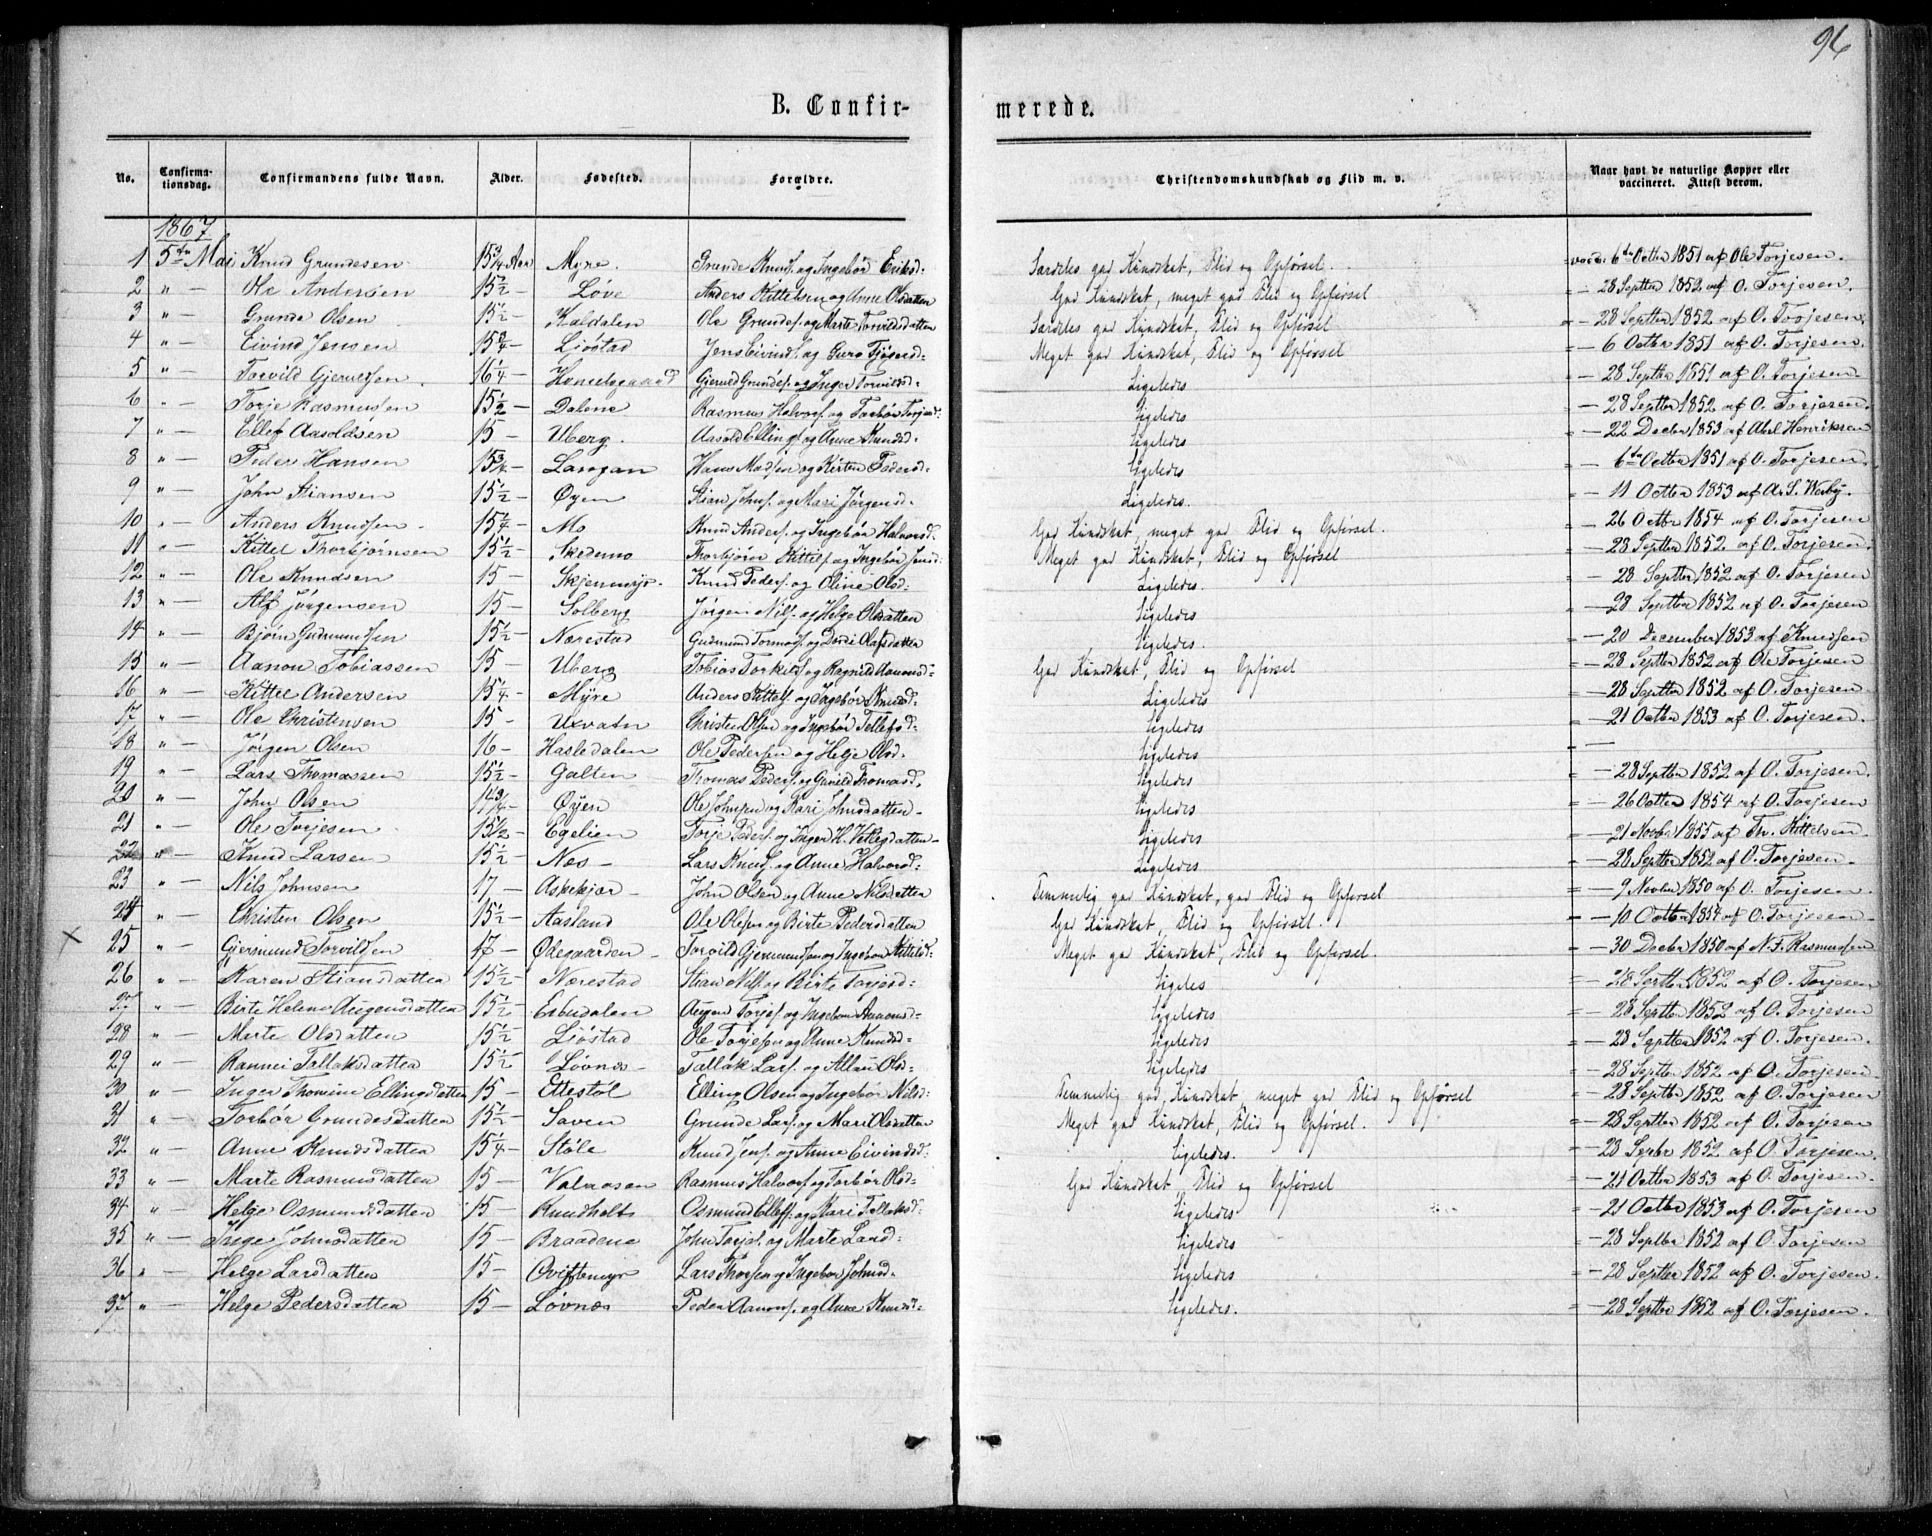 96
B. Confir-
merede.
No. Confirma-tionsdag. Confirmandens fulde Navn. Alder. Fødested. Forældre. Christendomskundskab og Flid m. v. Naar havt de naturlige Kopper eller vaccineret. Attest derom.
1867
1 5te Mai Knud Grundesen 15 3/4 Aar Myre. Grunde Knuds. og Ingebør Eriksd- Særdeles god Kundskab, Flid og Opførsel. vacc. 6te Octbr 1851 af Ole Torjesen.
2 " — Ole Andersen 15 1/2 - Løve Anders Kittelsen og Anne Olsdatten God Kundskab, meget god Flid og Opførsel = — 28 Septbr 1852 af O. Torjesen.
3 " — Grunde Olsen 15 1/2 - Kaldalen Ole Grundes. og Marte Torvildsdatten Særdeles god Kundskab, Flid og Opførsel = — 28 Septbr 1852 af O. Torjesen
4 " — Eivind Jensen 15 3/4 - Ljøstad Jens Eivinds. og Guro Meget god Kundskab, Flid og Opførsel = — 6 Octbr 1851 af O. Torjesen
5 " — Torvild Gjermdsen 16 1/4 - Gjermd Grundes. og Inger Torvildsd- Ligeledes = — 28 Septbr 1851 af O. Torjesen
6 " — Torje Rasmusen 15 1/2 - Dalene Rasmus Halvors. og Torbør Torjesd: Ligeledes = — 28 Septbr 1852 af O. Torjesen.
7 " — Ellef Aasoldsen 15 - Uberg. Aasold Ellings. og Anne Knudsd- Ligeledes = — 22 Decbr 1853 af Abel Henriksen
8 " — Peder Hansen 15 3/4 - Hans Madsen og Kirsten Pedersd- Ligeledes = — 6te Octbr 1851 af O. Torjesen.
9 " — John Stiansen 15 1/2 - Øyen Stian Johns. og Mari Jørgensd- Ligeledes. = — 11 Octbr 1853 af A. S. Weiby.
10 " — Anders Knudsen 15 1/4 - Mo Knud Anders. og Ingebør Halvorsd- God Kundskab, meget god Flid og Opførsel. = — 26 Octbr 1854 af O. Torjesen
11 " — Kittel Thorbjørnsen 15 1/2 - Skedemo Thorbjørn Kittels. og Ingebør Jensd- Meget god Kundskab, Flid og Opførsel = — 28 Septbr 1852 af O. Torjesen.
12 " — Ole Knudsen 15 - Skjenmyr. Knud Peders. og Oline Olsd- Ligeledes. = — 28 Septbr 1852 af O. Torjesen
13 " — Alf Jørgensen 15 - Solberg Jørgen Nils. og Helge Olsdatten Ligeledes — 28 Septbr 1852 af O. Torjesen
14 " — Bjørn Gudmundsen 15 1/2 - Nærestad Gudmund Tormos. og Dordi Olafsdatten Ligeledes. = — 20 December 1853 af Knudsen
15 " — Aanon Tobiassen 15 - Uberg Tobias Torkils. og Ragnild Aanonsd- God Kundskab, Flid og Opførsel = — 28 Septbr 1852 af Ole Torjesen
16 " — Kittel Andersen 15 1/4 - Myre Anders Kittels. og Ingebør Knudsd- Ligeledes = — 28 Septbr 1852 af O. Torjesen.
17 " — Ole Christensen 15 - Uxvatn Christen Olsen og Ingebør Tellefsd- Ligeledes = — 21 Octbr 1853 af O. Torjesen.
18 " — Jørgen Olsen 16 - Hasledalen Ole Pedersen og Helje Olsd- Ligeledes = —
19 " — Lars Thomassen 15 1/2 - Galten Thomas Peders. og Gunild Thomasd. Ligeledes = — 28 Septbr 1852 af O. Torjesen.
20 " — John Olsen 14 3/4 - Øyen Ole Johnsen og Kari Johnsdatten - Ligeledes = — 26 Octbr 1854 af O. Torjesen.
21 " — Ole Torjesen 15 1/2 - Egelien Torje Peders. og Inger H. Vetlegdatten - Ligeledes = — 21 Novbr 1855 af Th. Kittelsen
22 " — Knud Larsen 15 1/2 - Næs - Lars Knuds. og Anne Halvorsd- Ligeledes = — 28 Septbr 1852 af O. Torjesen.
23 " — Nils Johnsen 17 - Askekjær - John Olsen og Anne Nilsdatten Temmelig god Kundskab, god Flid og Opførsel = — 9 Novbr 1850 af O. Torjesen.
24 " — Christen Olsen 15 1/2 - Aasland Ole Olsen og Birte Pedersdatten God Kundskab, Flid og Opførsel. = — 10 Octbr 1854 af O. Torjesen
x 25 " — Gjermund Torvildsen 17 - Ølegaarden - Torvild Gjermundsen og Ingebør Kittelsd- Meget god Kundskab, Flid og Opførsel. = — 30 Decbr 1850 af N. F. Rasmussen
26 " — Karen Stiansdatten 15 1/2 - Nærestad Stian Nils. og Birte Torjesd- Ligeles = — 28 Septbr 1852 af O. Torjesen
27 " — Birte Helene Augensdatten 15 1/2 - Espedalen Augen Torjes. og Ingebør Aanonsd- Ligeledes = — 28 Septbr 1852 af O. Torjesen
28 " — Marte Olsdatten 15 1/2 - Ljøstad Ole Torjesen og Anne Knudsd- Ligeledes = — 28 Septbr 1852 af O. Torjesen
29 " — Rannei Tallaksdatten 15 1/2 - Løvnæs - Tallak Lars. og Olsd- Ligeledes = — 28 Septbr 1852 af O. Torjesen
30 " — Inger Thomine Ellingsdatten 15 - Ettestøl Elling Olsen og Ingebør Nilsd- Temmelig god Kundskab, meget god Flid og Opførsel = — 28 Septbr 1852 af O. Torjesen
31 " — Torbør Grundesdatten 15 1/2 - Saven Grunde Lars. og Mari Olsdatten Meget god Kundskab, Flid og Opførsel. = — 28 Septbr 1852 af O. Torjesen
32 " — Anne Knudsdatten 15 1/4 - Støle Knud Jens. og Anne Eivindsd- Ligeledes. = — 28 Sepbr 1852 af O. Torjesen.
33 " — Marte Rasmusdatten 15 - Valaasen Rasmus Halvors. og Torbør Olsd- God Kundskab, Flid og Opførsel = — 21 Octbr 1853 af O. Torjesen
34 " — Helge Osmundsdatten 15 - Rundholt Osmund Ellefs. og Kari Tallaksd- Ligeledes = — 21 Octbr 1853 af O. Torjesen
35 " — Inge Johnsdatten 15 - Braadene John Torjs. og Marte Larsd- Ligeledes = — 28 Septbr 1852 af O. Torjesen
36 " — Helge Larsdatten 15 - Qviftemyr Lars Thorsen og Ingebør Johnsd- Ligeledes = — 28 Septbr 1852 af O. Torjesen.
37 " — Helge Pedersdatten 15 - Løvnæs Peder Aanons. og Anne Knudsd- Ligeledes. = — 28 Septbr 1852 af O. Torjesen.